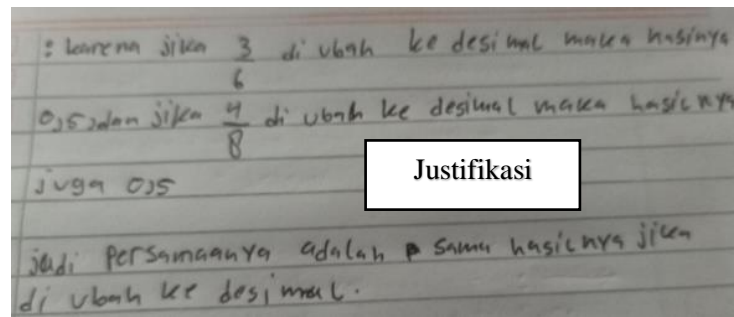 : karena jika 3/6 di ubah ke desimal maka hasinya
0,5, dan jika 4/8 di ubah ke desimal maka hasilnya
juga 0,5
Justifikasi
jadi persamaanya adalah sama hasilnya jika
di ubah ke desimal.